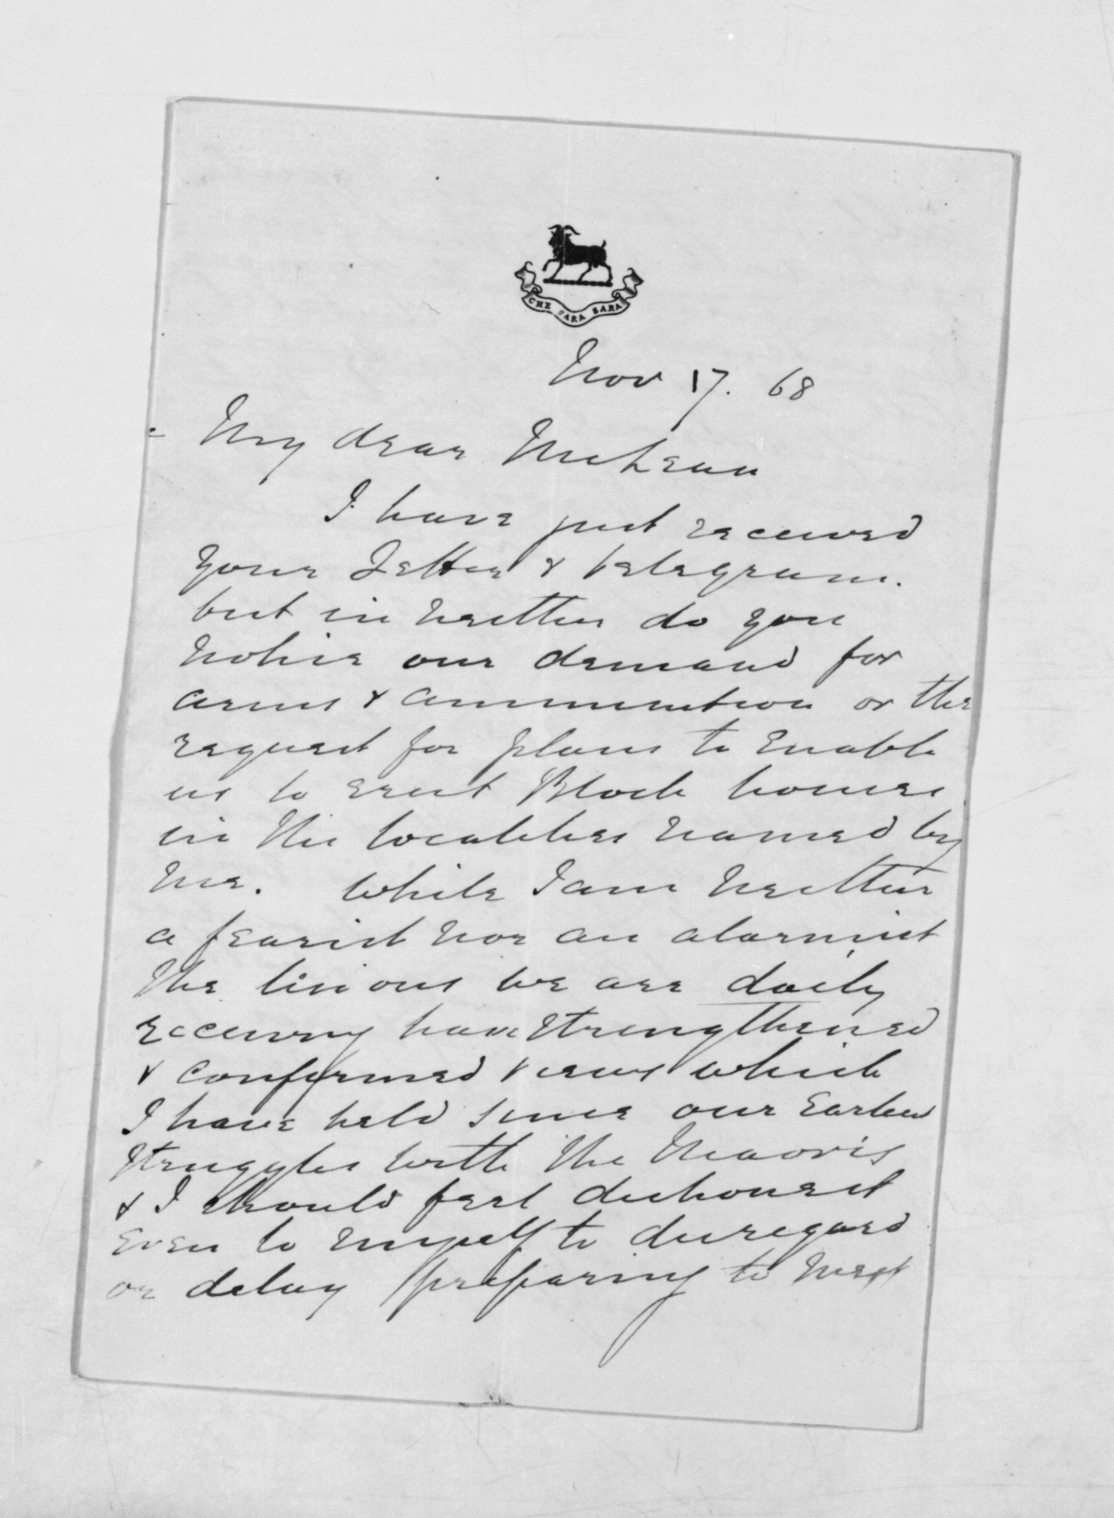 CHE SARA SARA
Nov 17. 68
My dear McLean
I have just received
your Letter & telegram.
but in neither do you
notice our demand for
arms & ammunition or the
request for plans to Enable
us to erect Block houses
in the localities named by
me. While I am neither
a fearist nor an alarmist
the lessons we are daily
receiving have strengthened
& confirmed views which
I have held since our Earlier
struggles with the Maoris
& I should feel dishonest
Even to myself to disregard
or delay preparing to meet